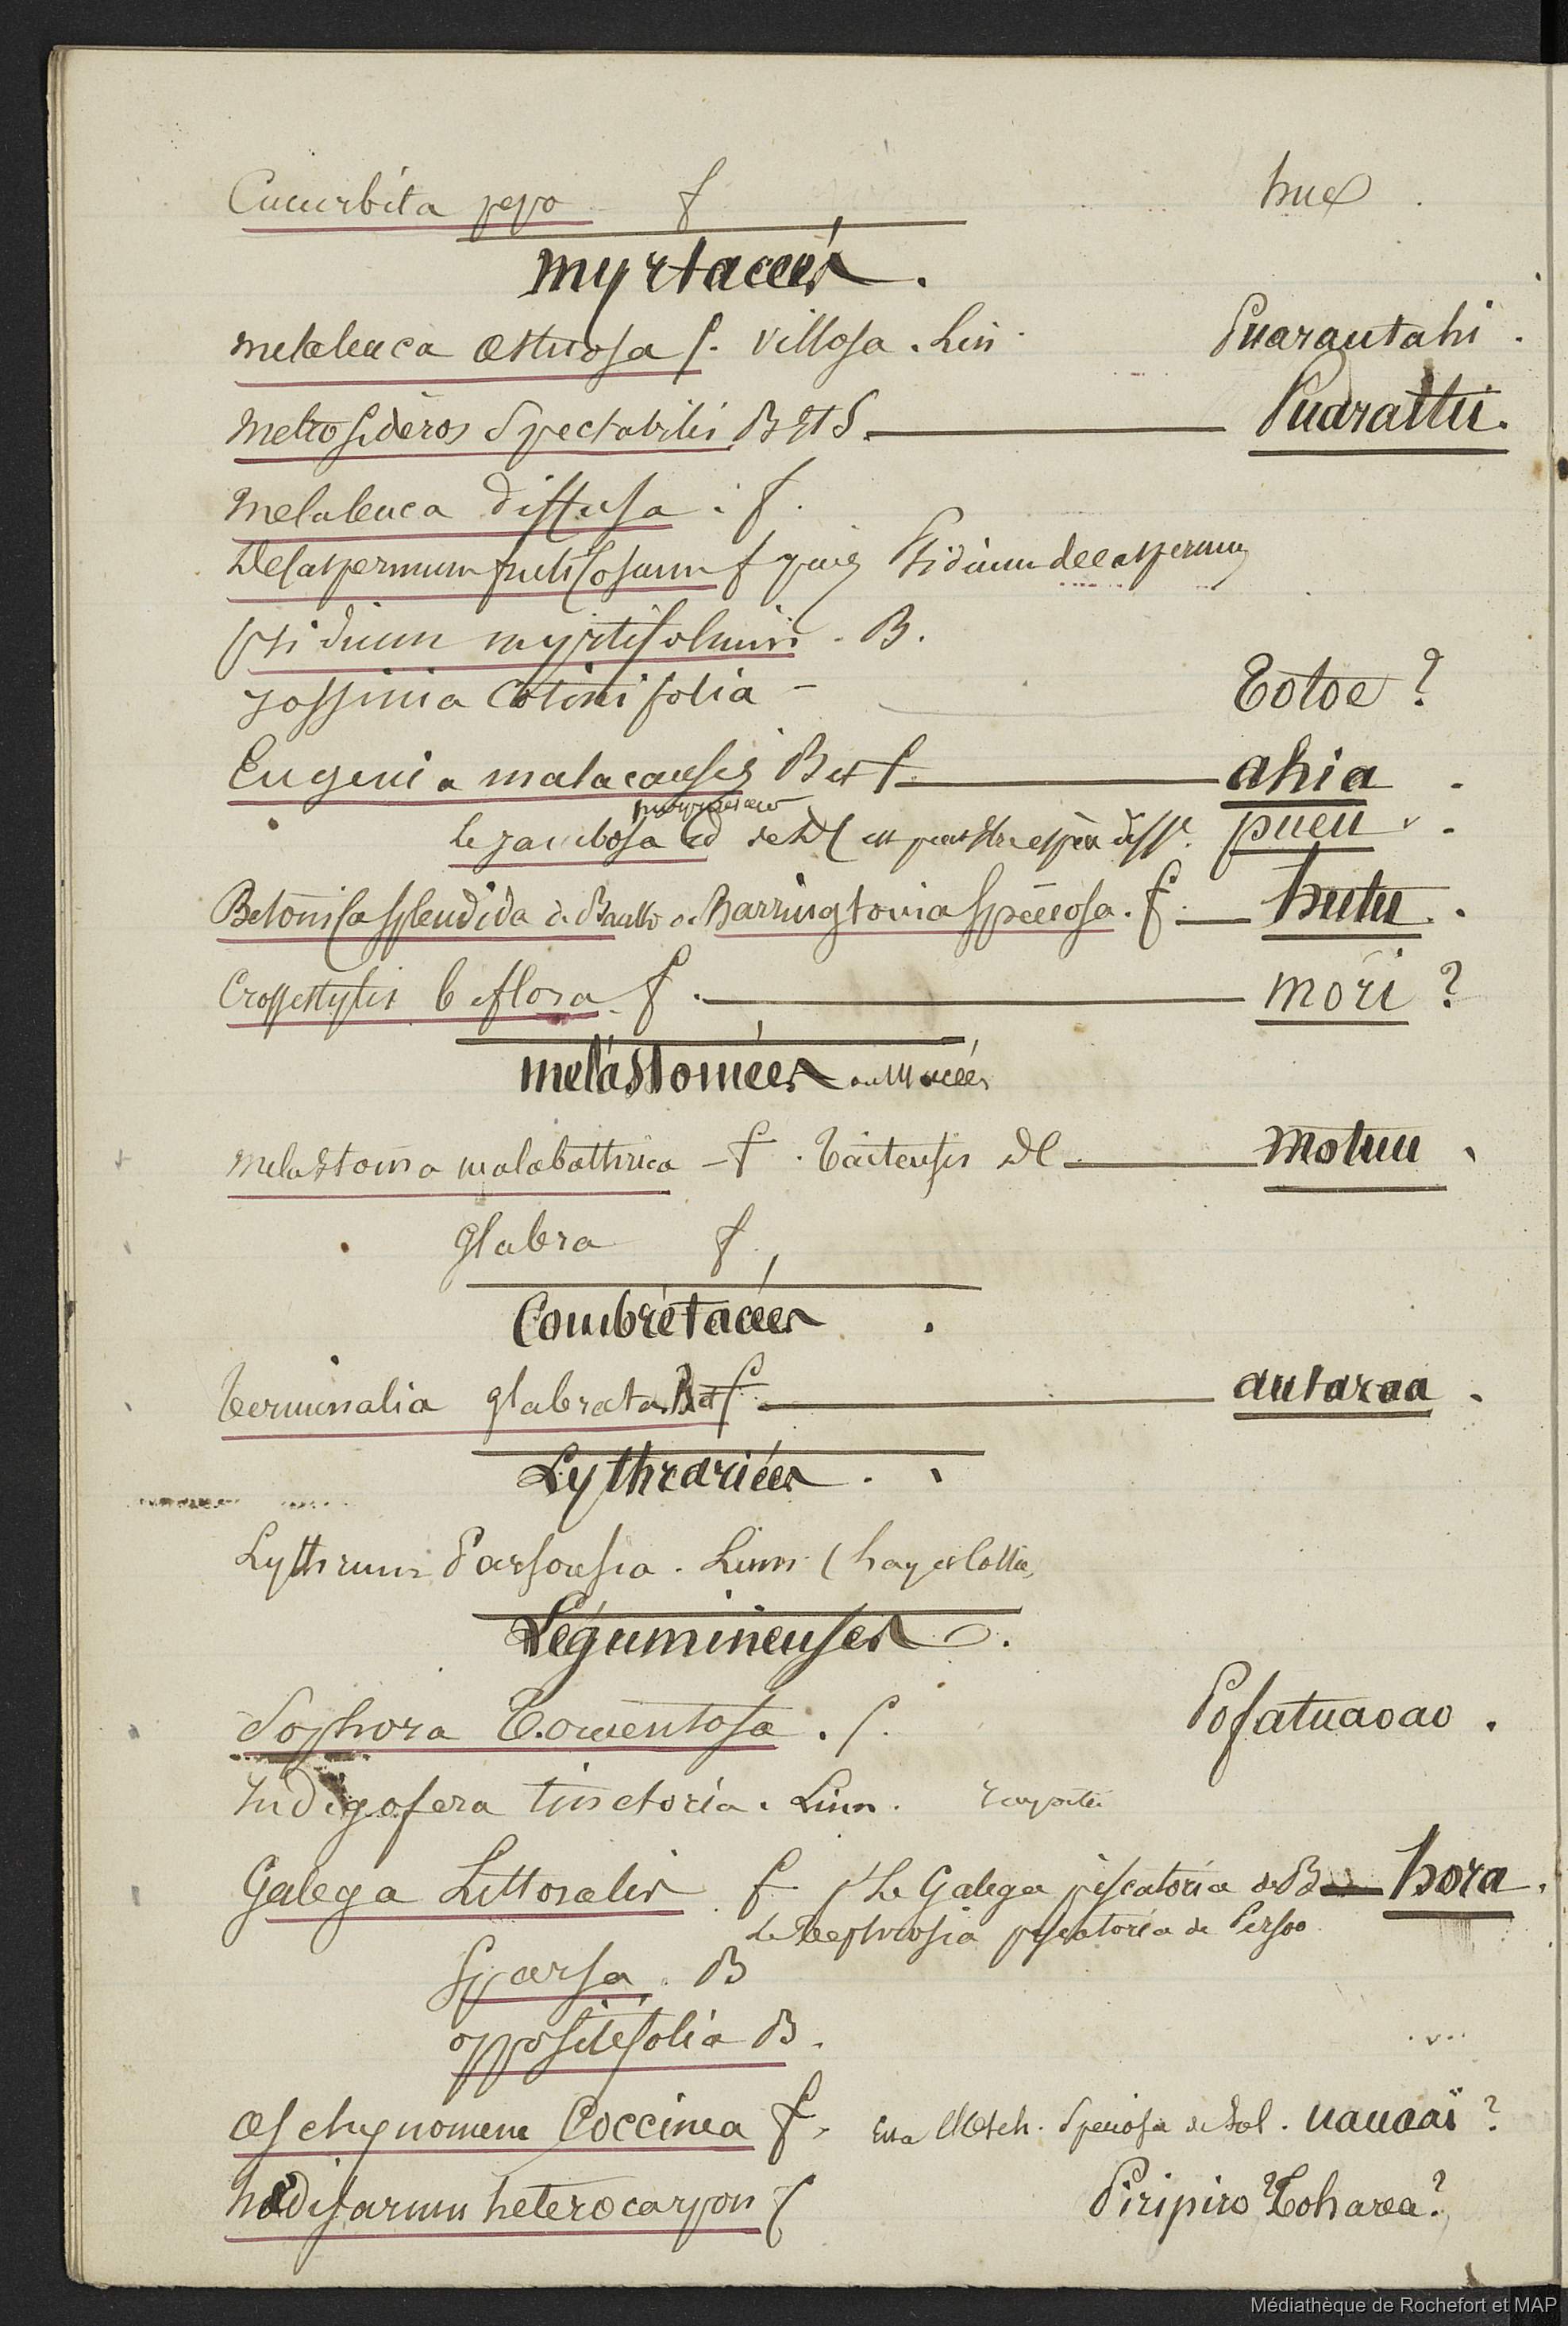 Cucurbita pepo f hue.
Myrtacées.
melaleuca æstuosa f. villosa. Lin. Puarautahi.
Metrosidéros Spectabilis B et S. Puarattu.
Melaleuca diffusa. f.
Decaspermum fruticosum f psidium decaspermum
psidium myrtifolium. B.
jossinia Cotinifolia - Totoe?
Eugenia malacensis B et f ahia.
le jambosa de Dl est peut être espèce diff. pueu.
Betonica splendida de ou Barringtonia Speciosa. f. hutu.
Crossostylis biflora f. mori?
melastomées ou Macées
melastoma malabathrica - f. Taïtensis DC motuu.
glabra f.
Combrétacées.
Terminalia glabrata B et f. autaraa.
Lythrariées.
Lythrum Parsonsia. Linn.
Légumineuses.
Sophora Tomentosa. f. Pofatuaoao.
Indigofera tinctoria. Linn.
Galega Littoralis f Le Galega piscatoria de B hora.
le Tephrosia piscatoria de Persoo
Sparsa. B
oppositifolia B.
Æschynomene Coccinea f. Æsch. Speciosa de Sol. uauaaï?
hédisarum heterocarpon f Piripiro? Toharea?
Médiathèque de Rochefort et MAP